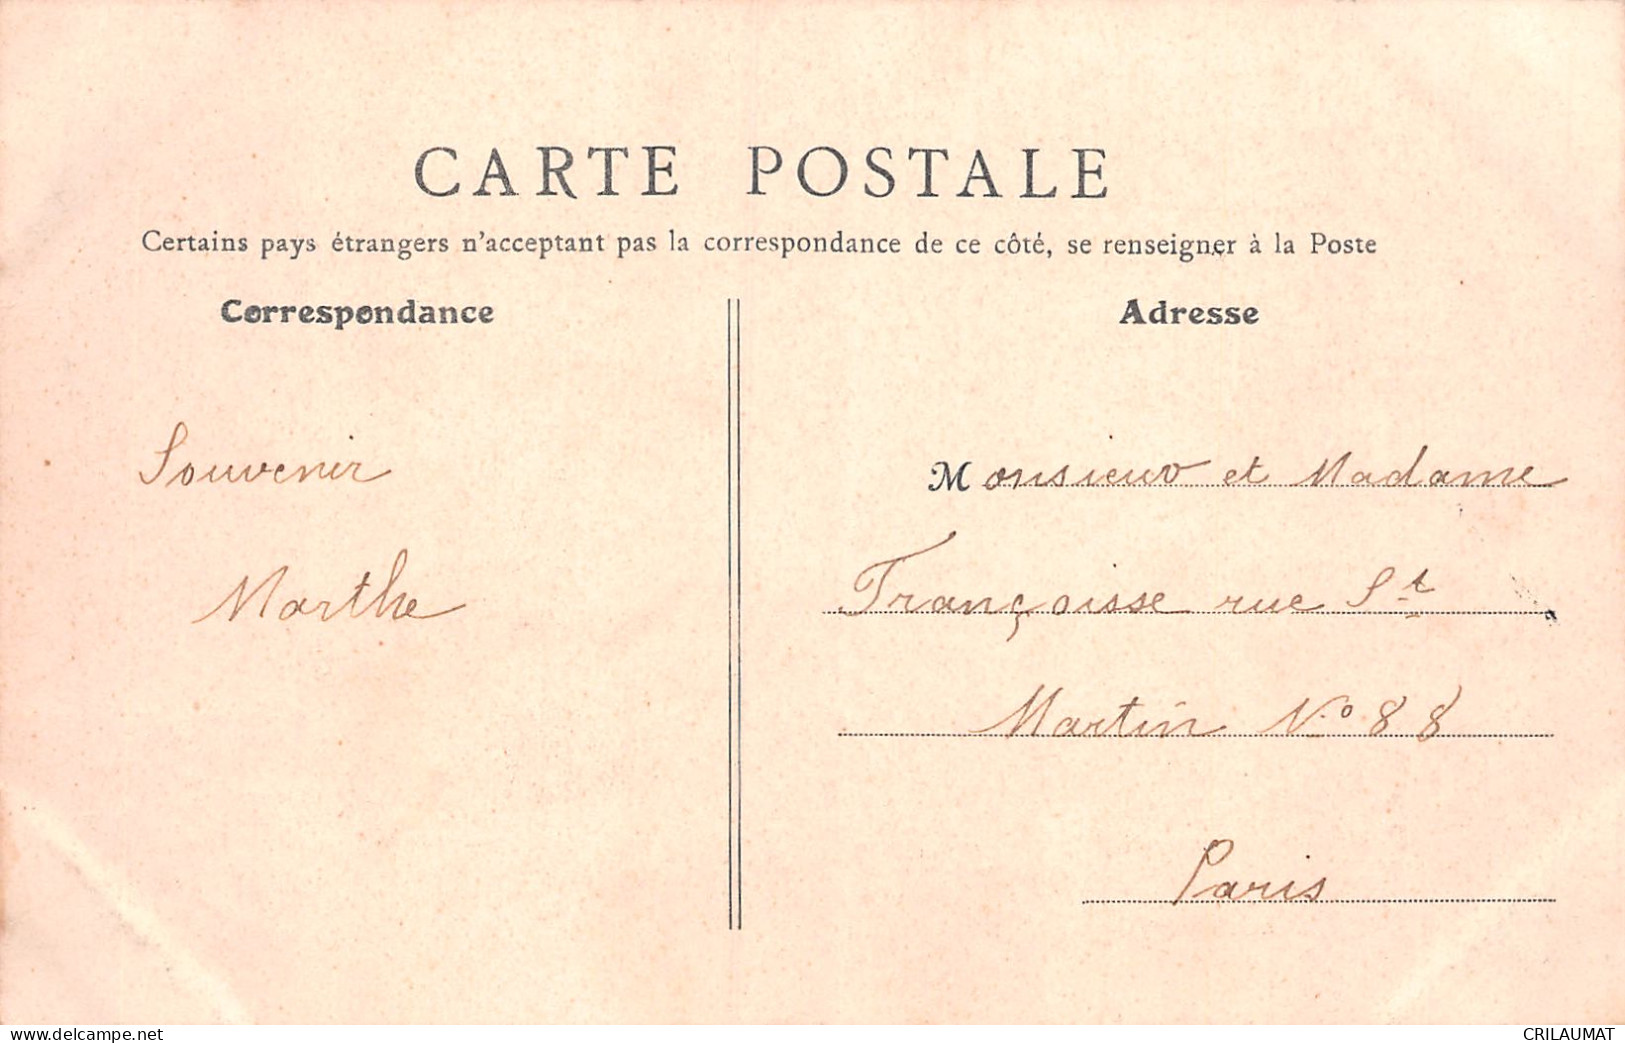 CARTE POSTALE
Certains pays étrangers n'acceptant pas la correspondance de ce côté, se renseigner à la Poste
Correspondance
Souvenir
Marthe
Adresse
Monsieur et Madame
Françoisse rue St
Martin No 88
Paris
www.delcampe.net
CRILAUMAT